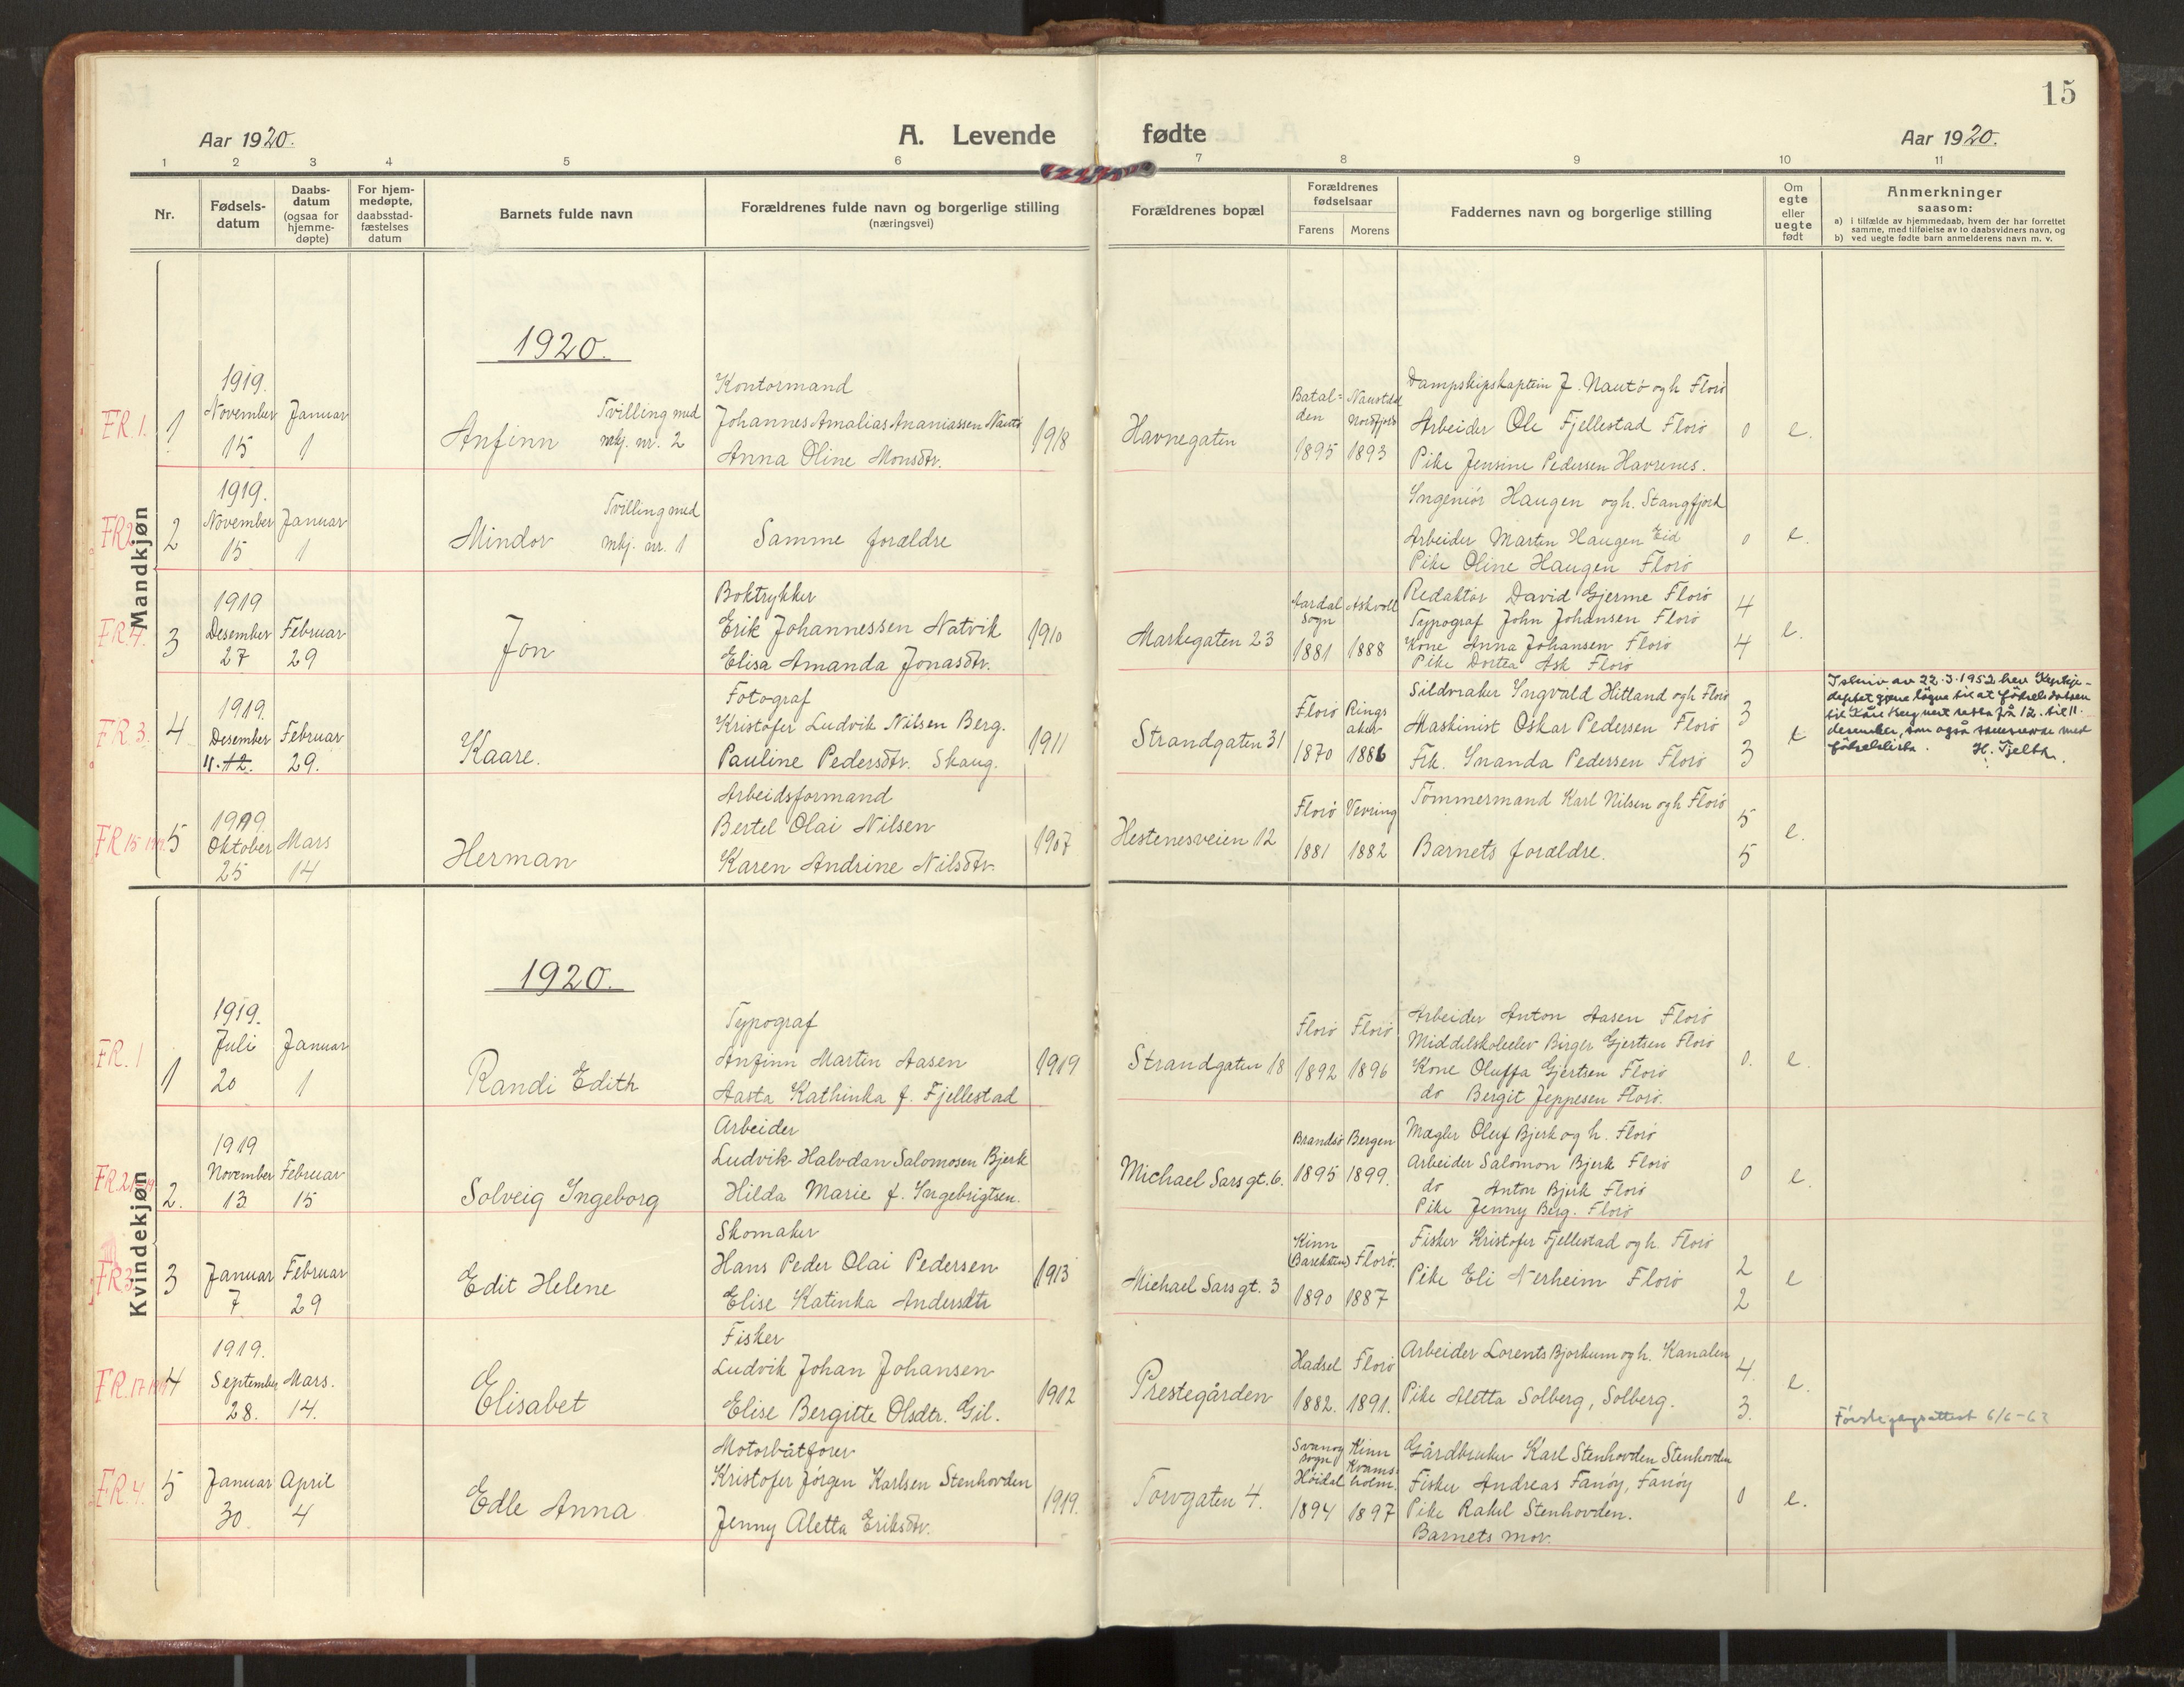 15
Aar 1920.
A. Levende fødte
Aar 1920.
1 2 3 4 5 6 7 8 9 10 11
Nr.
Fødsels-
datum
Daabs-
datum
(ogsaa for
hjemme-
døpte)
For hjem-
medøpte,
daabsstad-
fæstelses
datum
Barnets fulde navn
Forældrenes fulde navn og borgerlige stilling
(næringsvei)
Forældrenes bopæl
Forældrenes
fødselsaar
Farens Morens
Faddernes navn og borgerlige stilling
Om
egte
eller
uegte
født
Anmerkninger
saasom:
a) i tilfælde av hjemmedaab, hvem der har forrettet
samme, med tilføielse av to daabsvidners navn, og
b) ved uegte fødte barn anmelderens navn m. v.
Mandkjøn
1920.
FR. 1.
1
1919.
November
15
Januar
1
Anfinn
Tvilling med
mkj. nr. 2
Kontormand
Johannes Amalias Ananiassen Nautö
Anna Oline Monsdtr.
1918
Havnegaten
Batal=
den
1895
Naustdal
Nordfjord
1893
Dampskipskaptein J. Nautö og h Florö
Arbeider Ole Fjellestad Florö
Pike Jensine Pedersen Havrenes.
0
e.
FR 2
2
1919.
November
15
Januar
1
Mindor
Tvilling med
mkj. nr. 1
Samme forældre
Ingeniör Haugen og h. Stangfjord
Arbeider Martin Haugen Eid
Pike Oline Haugen Florö
0
e.
FR 4.
3
1919
Desember
27
Februar
29
Jon
Boktrykker
Erik Johannessen Natvik
Elisa Amanda Jonasdtr.
1910
Markegaten 23
Aardal
Sogn
1881
Askvoll
1888
Redaktör David Gjerme Florö
Typograf John Johansen Florö
Kone Anna Johansen Florö
Pike Dortea Ask Florö
4
4
e.
FR 3.
4
1919.
Desember
11. 12.
Februar
29.
Kaare.
Fotograf
Kristofer Ludvik Nilsen Berg.
Pauline Pedersdtr. Skaug.
1911
Strandgaten 31
Florö
1870
Rings
aker
1886
Sildvraker Ingvald Hitland og h Florö
Maskinist Oskar Pedersen Florö
Frk. Inanda Pedersen Florö
3
3
e
I skriv av 22.3.1952 hev Kyrkje-
departet gjeve løyve til at födselsdatoen
til Kåre Berg vert retta frå 12. til 11.
desember, som også samsvarar med
födselslista. H. Tjelth.
FR 15 1919.
5
1919.
Oktober
25
Mars
14
Herman
Arbeidsformand
Bertel Olai Nilsen
Karen Andrine Nilsdtr.
1907
Hestenesveien 12
Florö
1881
Vevring
1882
Tömmermand Karl Nilsen og h Florö
Barnets forældre.
5
5
e.
Kvindekjøn
1920.
FR. 1
1
1919.
Juli
20
Januar
1
Randi Edith
Typograf
Anfinn Martin Aasen
Aasta Kathinka f. Fjellestad
1919
Strandgaten 18
Florö
1892
Florö
1896
Arbeider Anton Aasen Florö
Middelskoleelev Birger Gjertsen Florö
Kone Oluffa Gjertsen Florö
do Bergit Jeppesen Florö.
0.
e.
FR 21 1919
2.
1919
November
13
Februar
15
Solveig Ingeborg
Arbeider
Ludvik Halvdan Salomosen Bjerk
Hilda Marie f. Ingebrigtsen.
Michael Sars gt. 6.
Brandsö
1895
Bergen
1899.
Mægler Oluf Bjerk og h. Florö
Arbeider Salomon Bjerk Florö
do Anton Bjerk Florö
Pike Jenny Berg. Florö
0
e.
FR 3
3
Januar
7
Februar
29
Edit Helene
Skomaker
Hans Peder Olai Pedersen
Elise Katinka Andersdtr
1913
Michael Sars gt. 3
Kinn
(Barekstad)
1890
Florö.
1887
Fisker Kristofer Fjellestad og h. Florö
Pike Eli Nerheim Florö
2
2
e
FR. 17 1919
4
1919.
September
28.
Mars.
14.
Elisabet
Fisker
Ludvik Johan Johansen
Elise Bergitte Olsdtr. Gil.
1912
Prestegården
Hadsel
1882.
Florö
1891.
Arbeider Lorents Bjorkum og h. Kanalen
Pike Aletta Solberg, Solberg.
4.
3.
e.
FR. 4.
5
Januar
30.
April
4
Edle Anna
Motorbåtförer
Kristofer Jörgen Karlsen Stenhovden
Jenny Aletta Eriksdtr.
1919.
Torvgaten 4.
Svanöy
sogn
Höidal
1894
Kinn
Kvams-
holm.
1897
Gårdbruker Karl Stenhovden Stenhovden
Fisker Andreas Fanöy, Fanöy
Pike Rakel Stenhovden.
Barnets mor.
0
e.